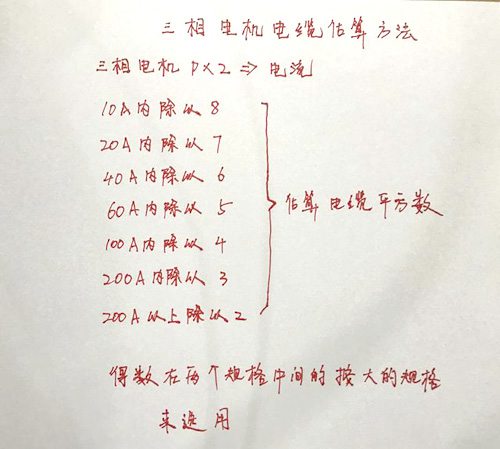 三相电机电缆估算方法
三相电机 P×2 => 电流
10A内除以8
20A内除以7
40A内除以6
60A内除以5
100A内除以4
200A内除以3
200A以上除以2
估算电缆平方数
得数在两个规格中间的按大的规格
来选用